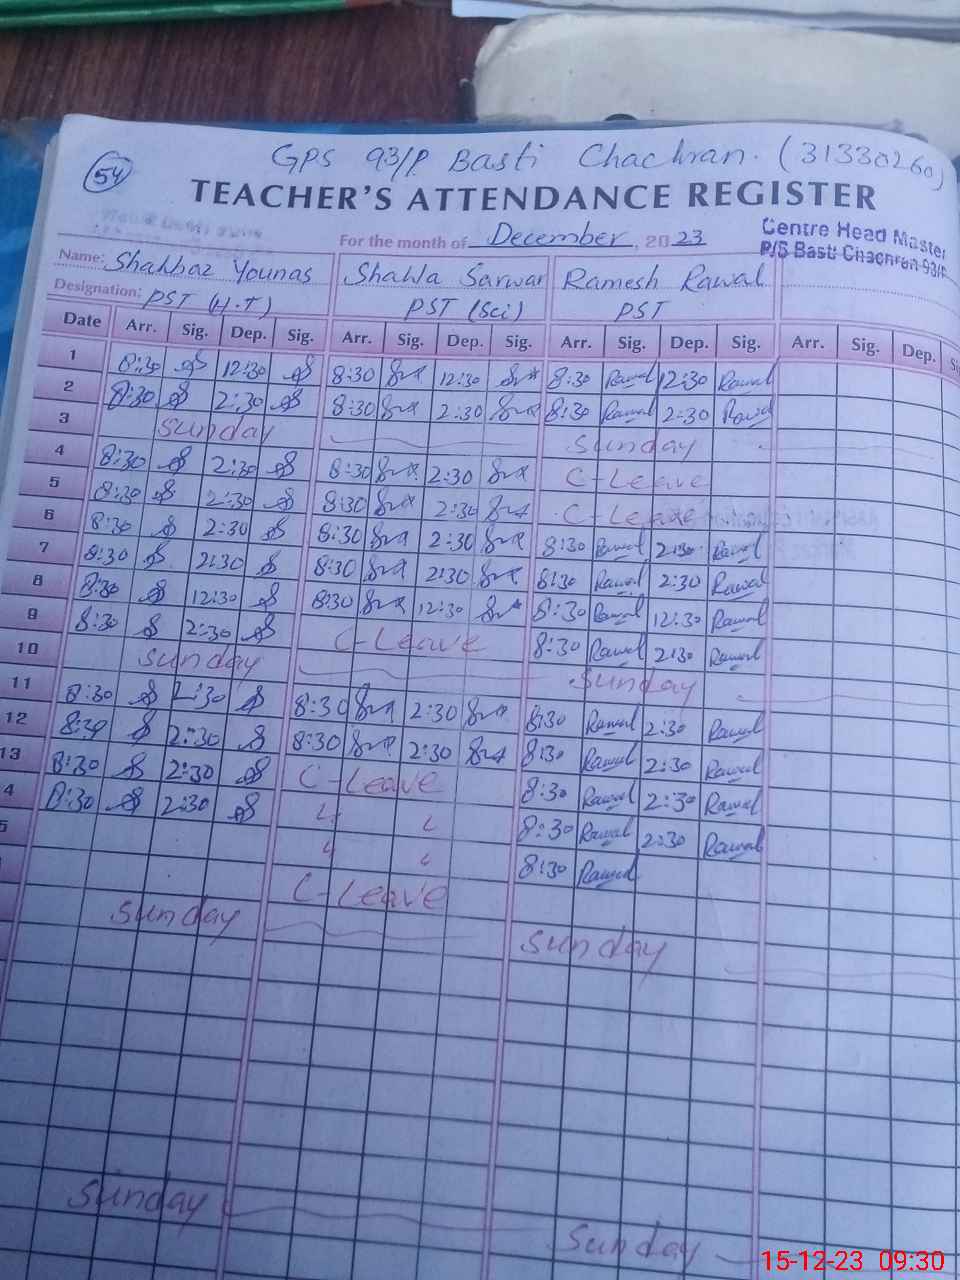 54
GPS 93/P Basti Chachran. (31330260)
TEACHER'S ATTENDANCE REGISTER
For the month of December, 2023
Centre Head Master
P/S Basti Chachran 93/P
Name: Shahbaz Younas Shahla Sarwar Ramesh Rawal
Designation: PST (H.T) PST (Sci) PST
Date Arr. Sig. Dep. Sig. Arr. Sig. Dep. Sig. Arr. Sig. Dep. Sig. Arr. Sig. Dep.
1 8:30 12:30 8:30 12:30 8:30 Rawal 12:30 Rawal
2 8:30 2:30 8:30 2:30 8:30 Rawal 2:30 Rawal
3 Sunday Sunday
4 8:30 2:30 8:30 2:30 C-Leave
5 8:30 2:30 8:30 2:30 C-Leave
6 8:30 2:30 8:30 2:30 8:30 Rawal 2:30 Rawal
7 8:30 2:30 8:30 2:30 8:30 Rawal 2:30 Rawal
8 8:30 12:30 8:30 12:30 8:30 Rawal 12:30 Rawal
9 8:30 2:30 C-Leave 8:30 Rawal 2:30 Rawal
10 Sunday Sunday
11 8:30 2:30 8:30 2:30 8:30 Rawal 2:30 Rawal
12 8:30 2:30 8:30 2:30 8:30 Rawal 2:30 Rawal
13 8:30 2:30 C-Leave 8:30 Rawal 2:30 Rawal
4 8:30 2:30 8:30 Rawal 2:30 Rawal
5 8:30 Rawal
C-Leave
Sunday Sunday
Sunday Sunday
15-12-23 09:30